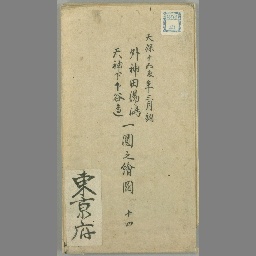 天保十五辰年三月調
外神田湯嶋
天神下下谷邊
一圓之繪圖
十四
東京府